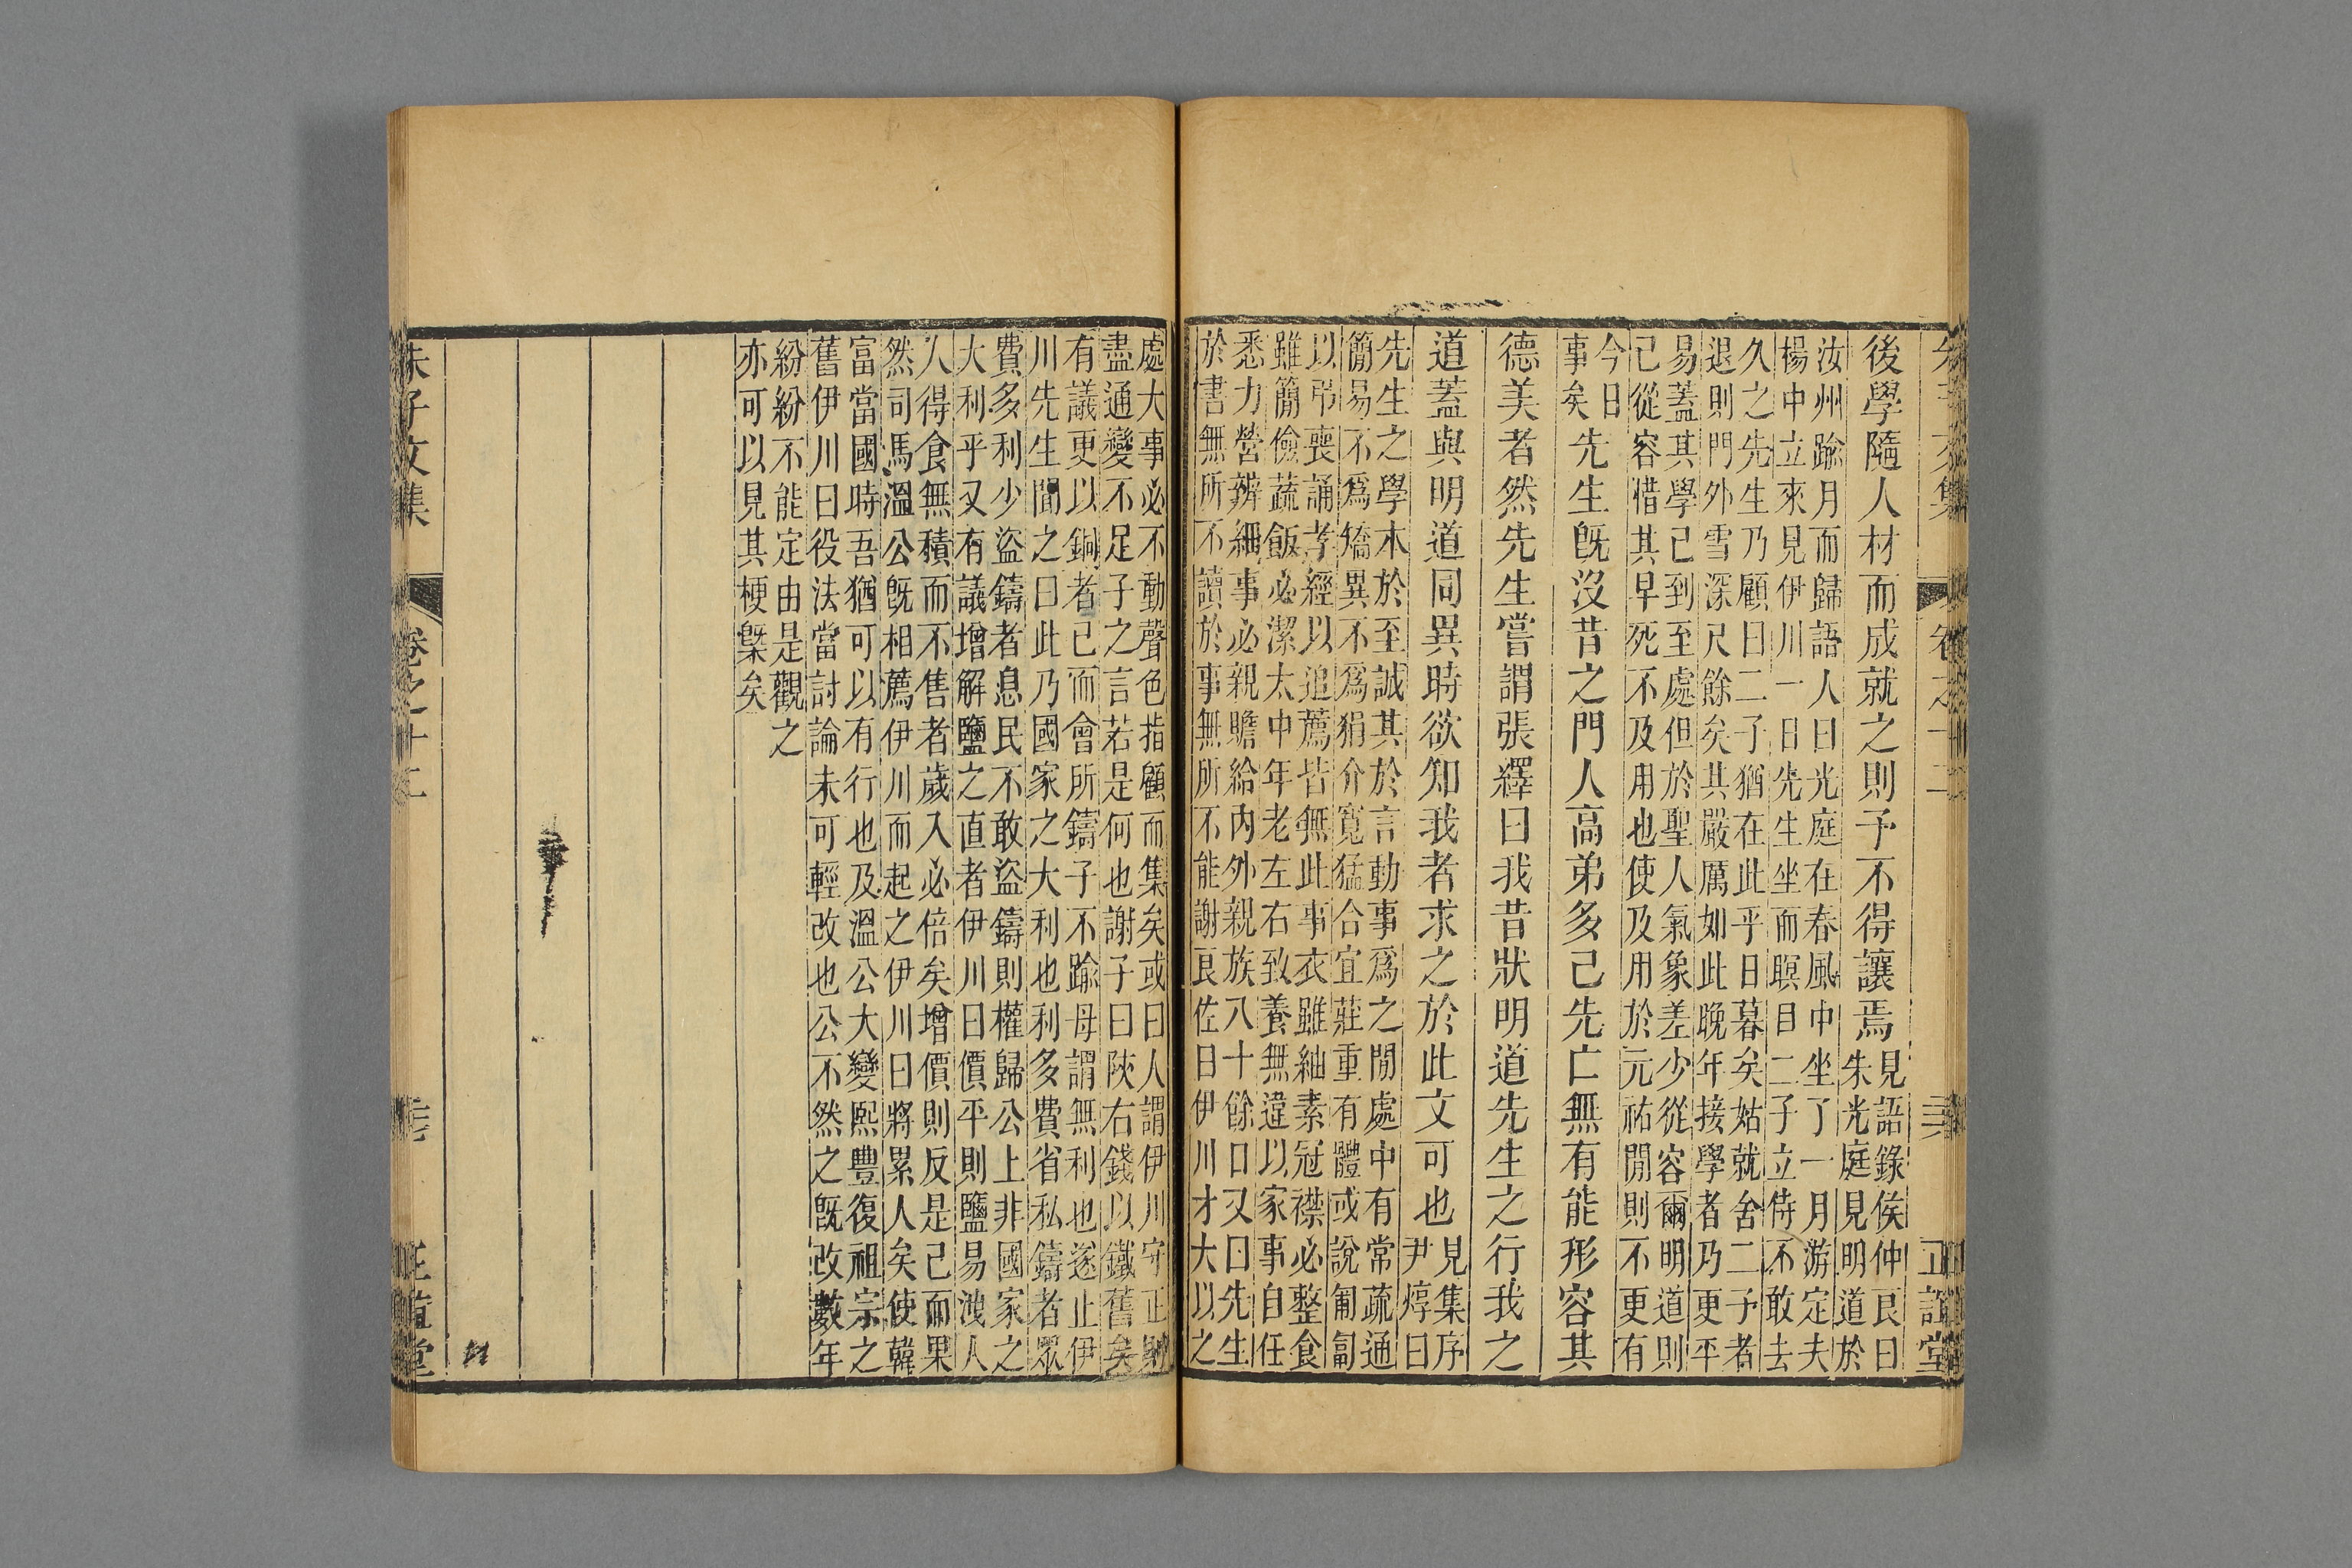 朱子文集 卷之十二 正誼堂
後學隨人材而成就之則予不得讓焉
見語錄侯仲良曰
朱光庭見明道於
汝州踰月而歸語人曰光庭在春風中坐了一月游定夫
楊中立來見伊川一日先生坐而瞑目二子立侍不敢去
久之先生乃顧曰二子猶在此乎日暮矣姑就舍二子者
退則門外雪深尺餘矣其嚴厲如此晚年接學者乃更平
易蓋其學已到至處但於聖人氣象差少從容爾明道則
已從容惜其早死不及用也使及用於元祐間則不更有
今日
事矣
先生旣沒昔之門人高弟多已先亡無有能形容其
德美者然先生嘗謂張繹曰我昔狀明道先生之行我之
道蓋與明道同異時欲知我者求之於此文可也
見集序
尹焞曰
先生之學本於至誠其於言動事爲之閒處中有常疏通
簡易不爲矯異不爲狷介寬猛合宜莊重有體或說匍匐
以弔喪誦孝經以追薦皆無此事衣雖紬素冠襟必整食
雖簡儉蔬飯必潔太中年老左右致養無違以家事自任
悉力營辨細事必親贍給內外親族八十餘口又曰先生
於書無所不讀於事無所不能謝良佐曰伊川才大以之
處大事必不動聲色指顧而集矣或曰人謂伊川守正則
盡通變不足子之言若是何也謝子曰陝右錢以鐵舊矣
有議更以銅者已而會所鑄子不踰母謂無利也遂止伊
川先生聞之曰此乃國家之大利也利多費省私鑄者眾
費多利少盜鑄者息民不敢盜鑄則權歸公上非國家之
大利乎又有議增解鹽之直者伊川曰價平則鹽易洩人
人得食無積而不售者歲入必倍矣增價則反是已而果
然司馬溫公旣相薦伊川而起之伊川曰將累人矣使韓
富當國時吾猶可以有行也及溫公大變熙豐復祖宗之
舊伊川曰役法當討論未可輕改也公不然之旣改數年
紛紛不能定由是觀之
亦可以見其梗槩矣
朱子文集 卷之十二 正誼堂